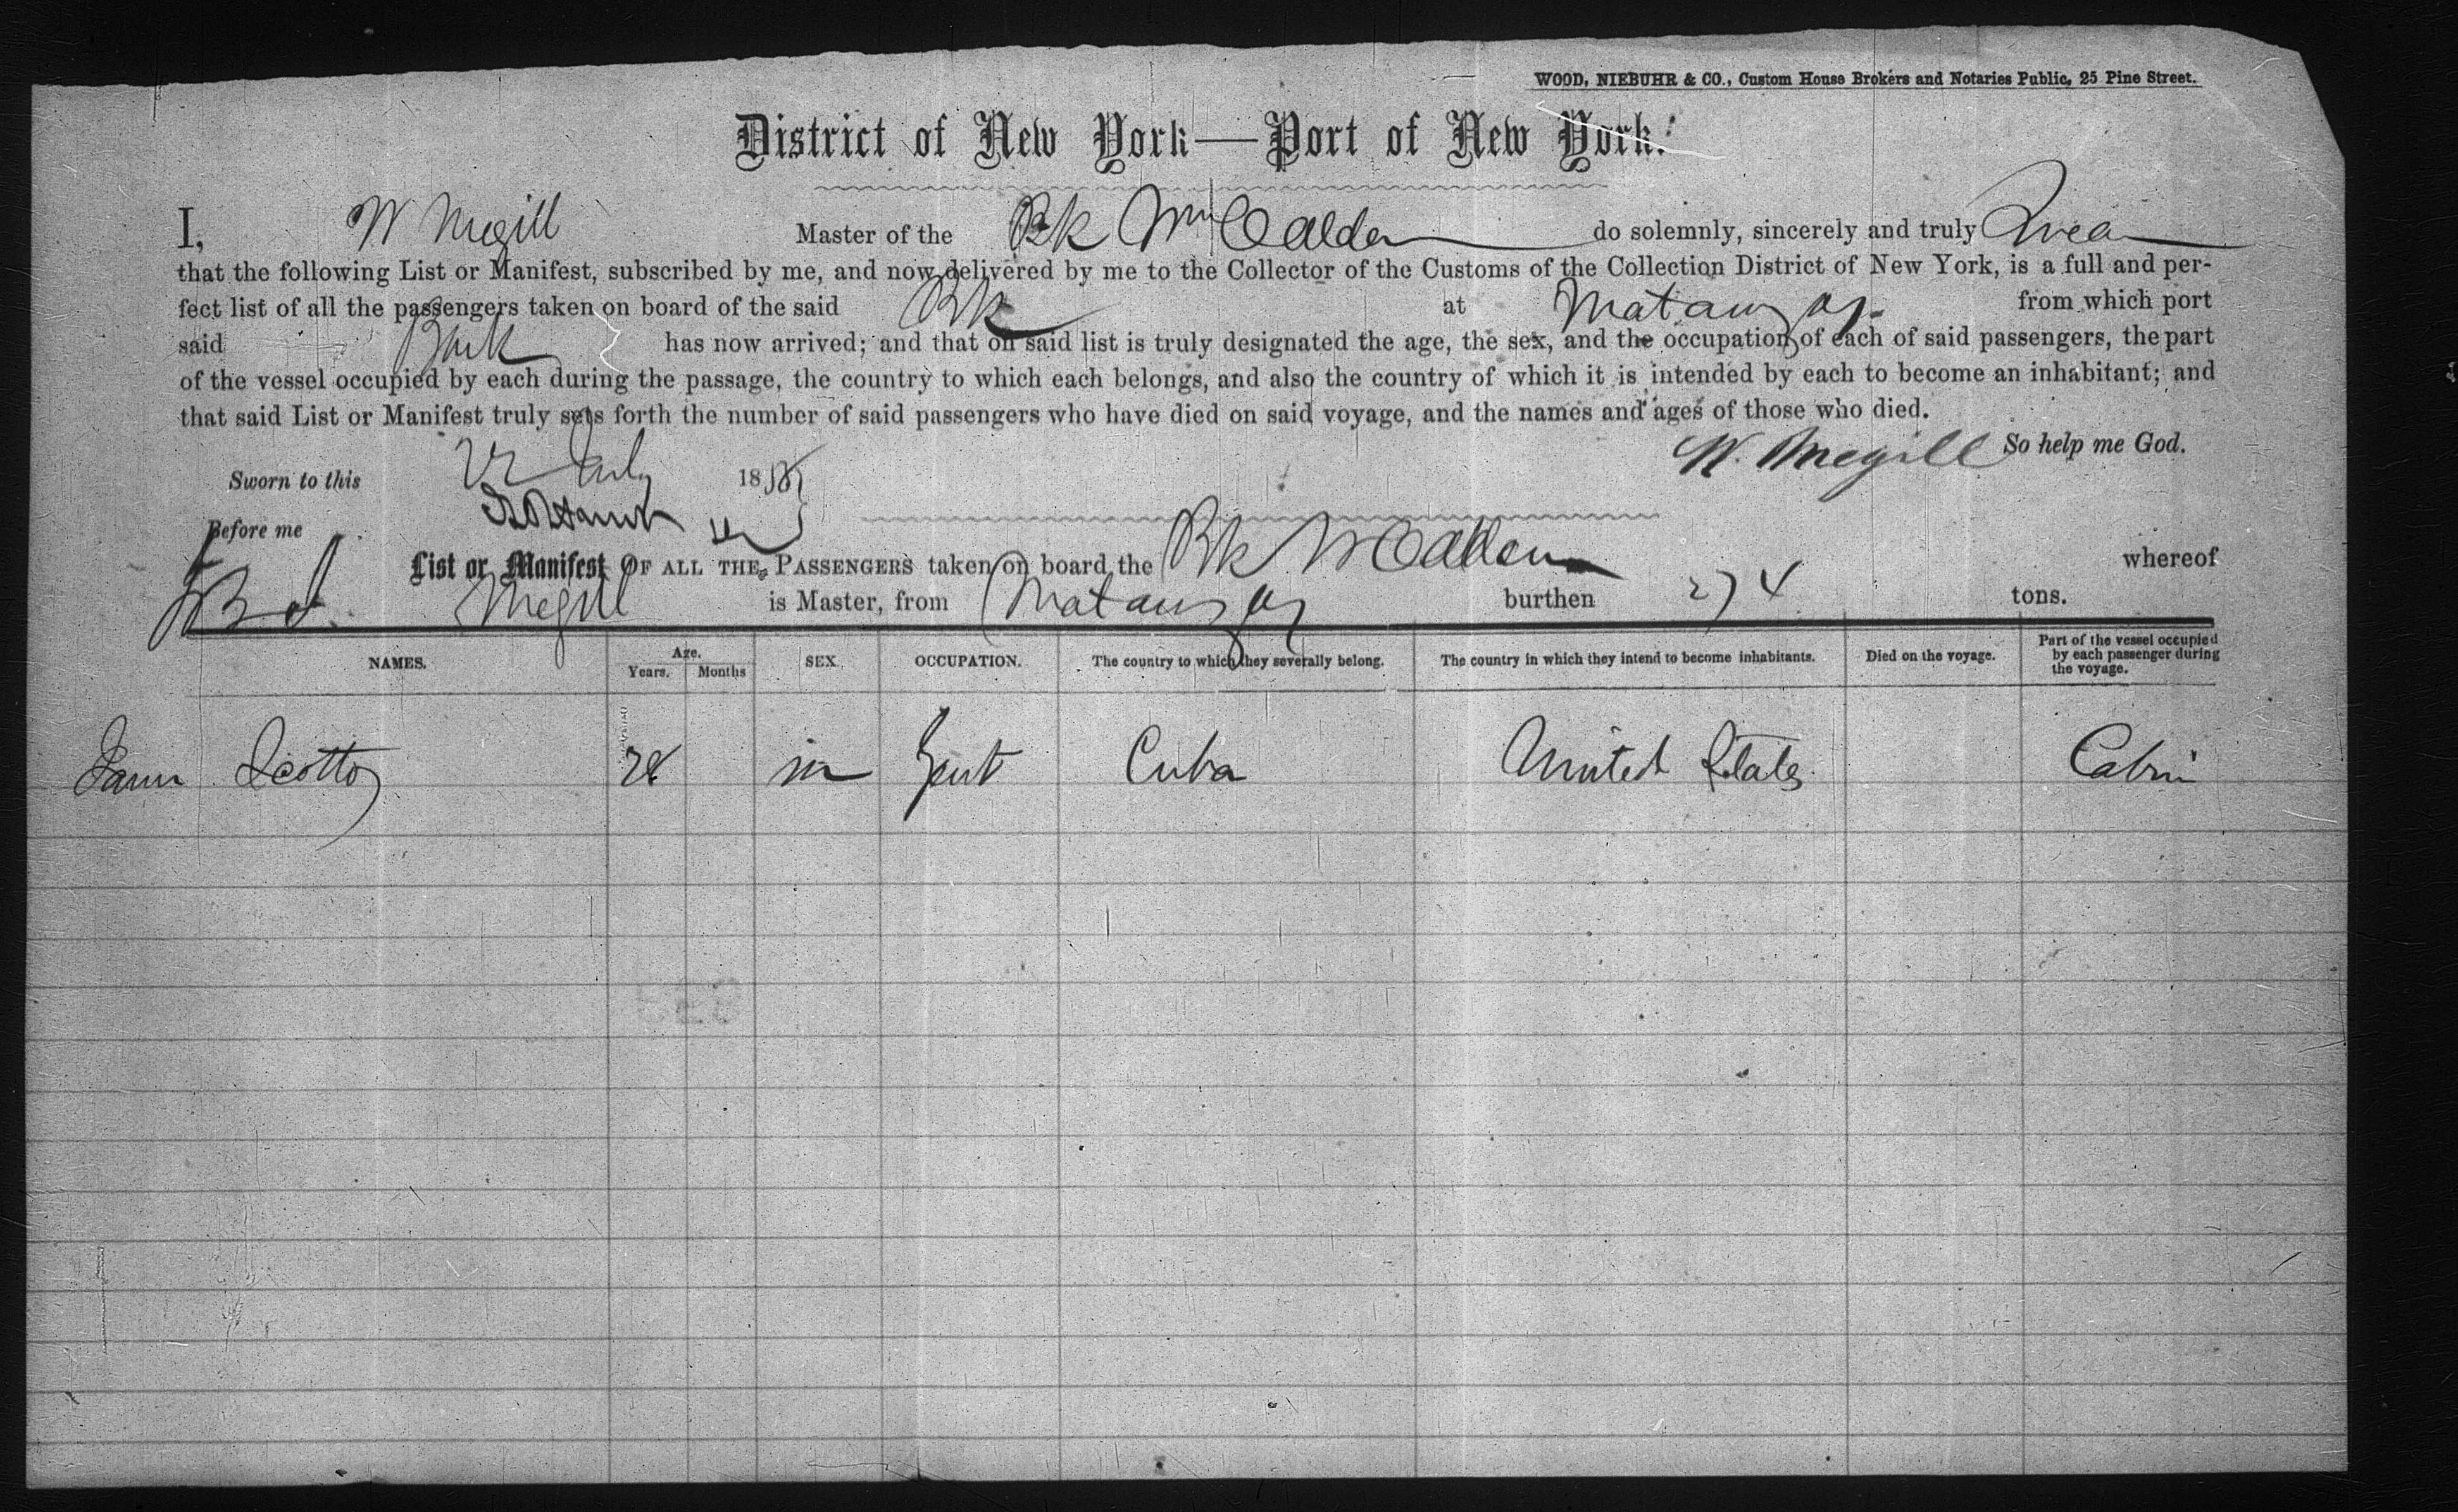 WOOD, NIEBUHR & CO., Custom House Brokers and Notaries Public, 25 Pine Street.
District of New York—Port of New York.
I, W Megill Master of the Bk Wm O Alden do solemnly, sincerely and truly Swear
that the following List or Manifest, subscribed by me, and now delivered by me to the Collector of the Customs of the Collection District of New York, is a full and per-
fect list of all the passengers taken on board of the said Bk at Matanzas from which port
said Bark has now arrived; and that on said list is truly designated the age, the sex, and the occupation of each of said passengers, the part
of the vessel occupied by each during the passage, the country to which each belongs, and also the country of which it is intended by each to become an inhabitant; and
that said List or Manifest truly sets forth the number of said passengers who have died on said voyage, and the names and ages of those who died.
W. Megill So help me God.
Sworn to this 22 July 18
Before me
List or Manifest OF ALL THE PASSENGERS taken on board the Bk W O Alden whereof
Megill is Master, from Matanzas burthen 274 tons.
NAMES. Age. Years. Months SEX. OCCUPATION. The country to which they severally belong. The country in which they intend to become inhabitants. Died on the voyage. Part of the vessel occupied by each passenger during the voyage.
Scotto 28 m Gent Cuba United States Cabin